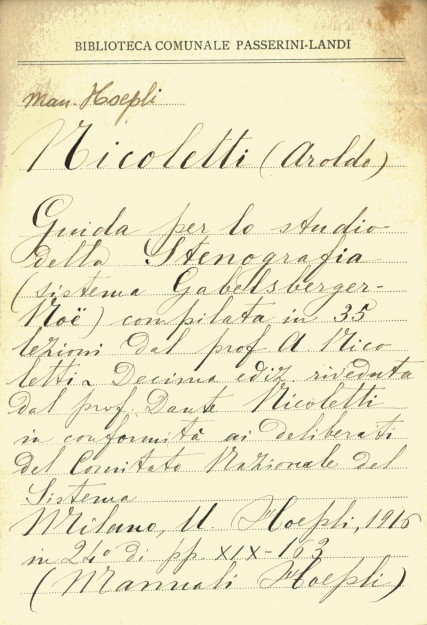 BIBLIOTECA COMUNALE PASSERINI-LANDI
Man. Hoepli
Nicoletti (Aroldo)
Guida per lo studio
della Stenografia
(sistema Gabelsberger-
Noë) compilata in 35
lezioni dal prof A Nico
letti. Decima ediz. riveduta
dal prof. Dante Nicoletti
in conformità ai deliberati
del Comitato Nazionale del
Sistema
Milano, U. Hoepli, 1916
in 24º di pp. XIX-163
(Manuali Hoepli)